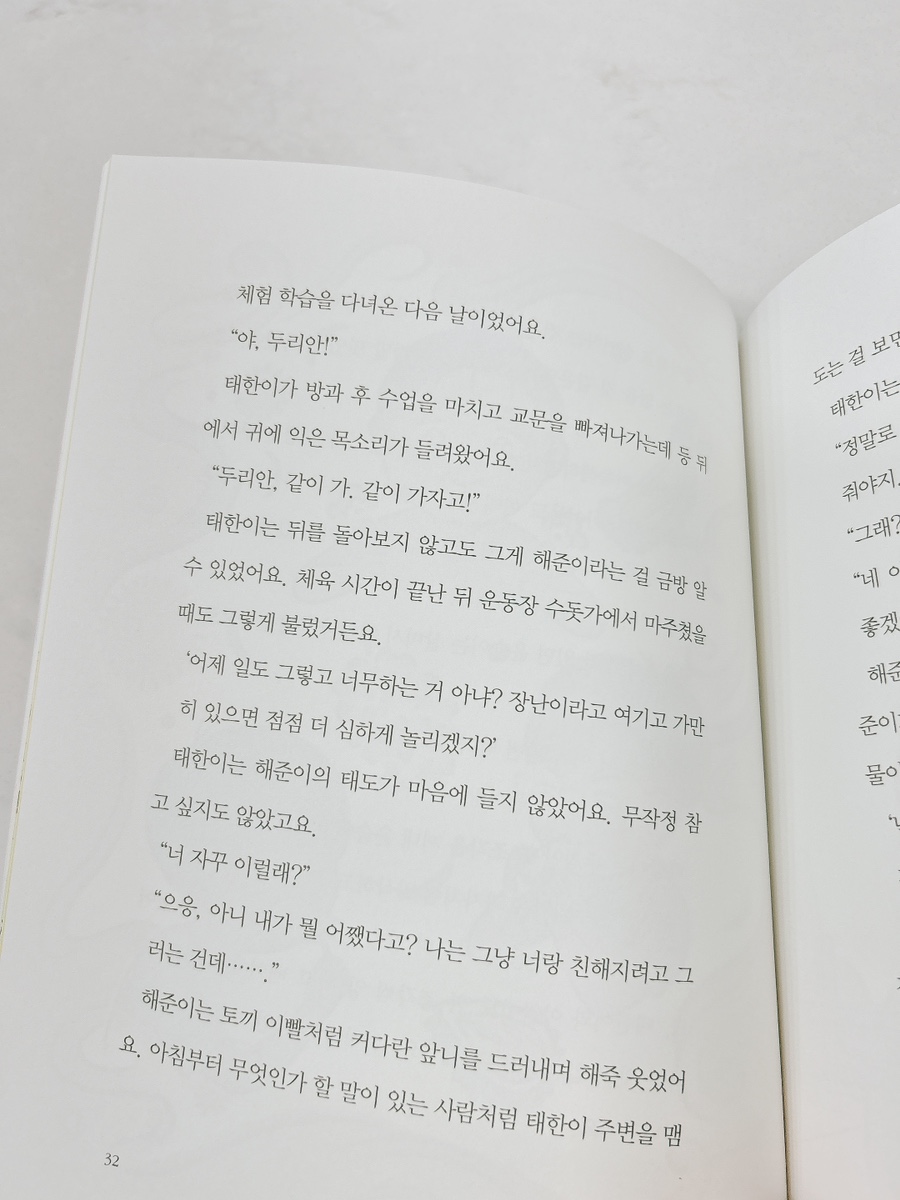 체험 학습을 다녀온 다음 날이었어요.
“야, 두리안!”
태한이가 방과 후 수업을 마치고 교문을 빠져나가는데 등 뒤
에서 귀에 익은 목소리가 들려왔어요.
“두리안, 같이 가. 같이 가자고!”
태한이는 뒤를 돌아보지 않고도 그게 해준이라는 걸 금방 알
수 있었어요. 체육 시간이 끝난 뒤 운동장 수돗가에서 마주쳤을
때도 그렇게 불렀거든요.
‘어제 일도 그렇고 너무하는 거 아냐? 장난이라고 여기고 가만
히 있으면 점점 더 심하게 놀리겠지?’
태한이는 해준이의 태도가 마음에 들지 않았어요. 무작정 참
고 싶지도 않았고요.
“너 자꾸 이럴래?”
“으응, 아니 내가 뭘 어쨌다고? 나는 그냥 너랑 친해지려고 그
러는 건데…….”
해준이는 토끼 이빨처럼 커다란 앞니를 드러내며 해죽 웃었어
요. 아침부터 무엇인가 할 말이 있는 사람처럼 태한이 주변을 맴
32
도는 걸 보면
태한이는
“정말로
줘야지.
“그래?
“네 이
좋겠
해준
준이
물이